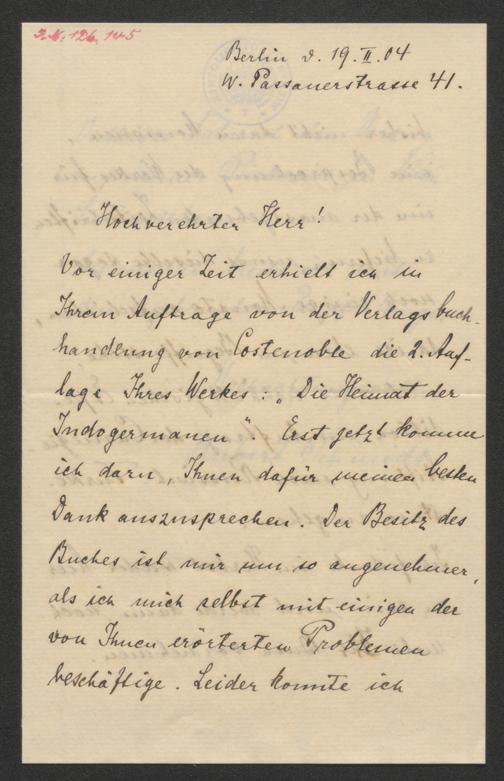 I. N. 126.145
Berlin d. 19. II. 04
W. Passauerstrasse 41.
Hochverehrter Herr!
Vor einiger Zeit erhielt ich in
Ihrem Auftrage von der Verlagsbuch-
handlung von Costenoble die 2. Auf-
lage Ihres Werkes: „Die Heimat der
Indogermanen“. Erst jetzt komme
ich dazu, Ihnen dafür meinen besten
Dank auszusprechen. Der Besitz des
Buches ist mir um so angenehmer,
als ich mich selbst mit einigen der
von Ihnen erörterten Problemen
beschäftige. Leider konnte ich